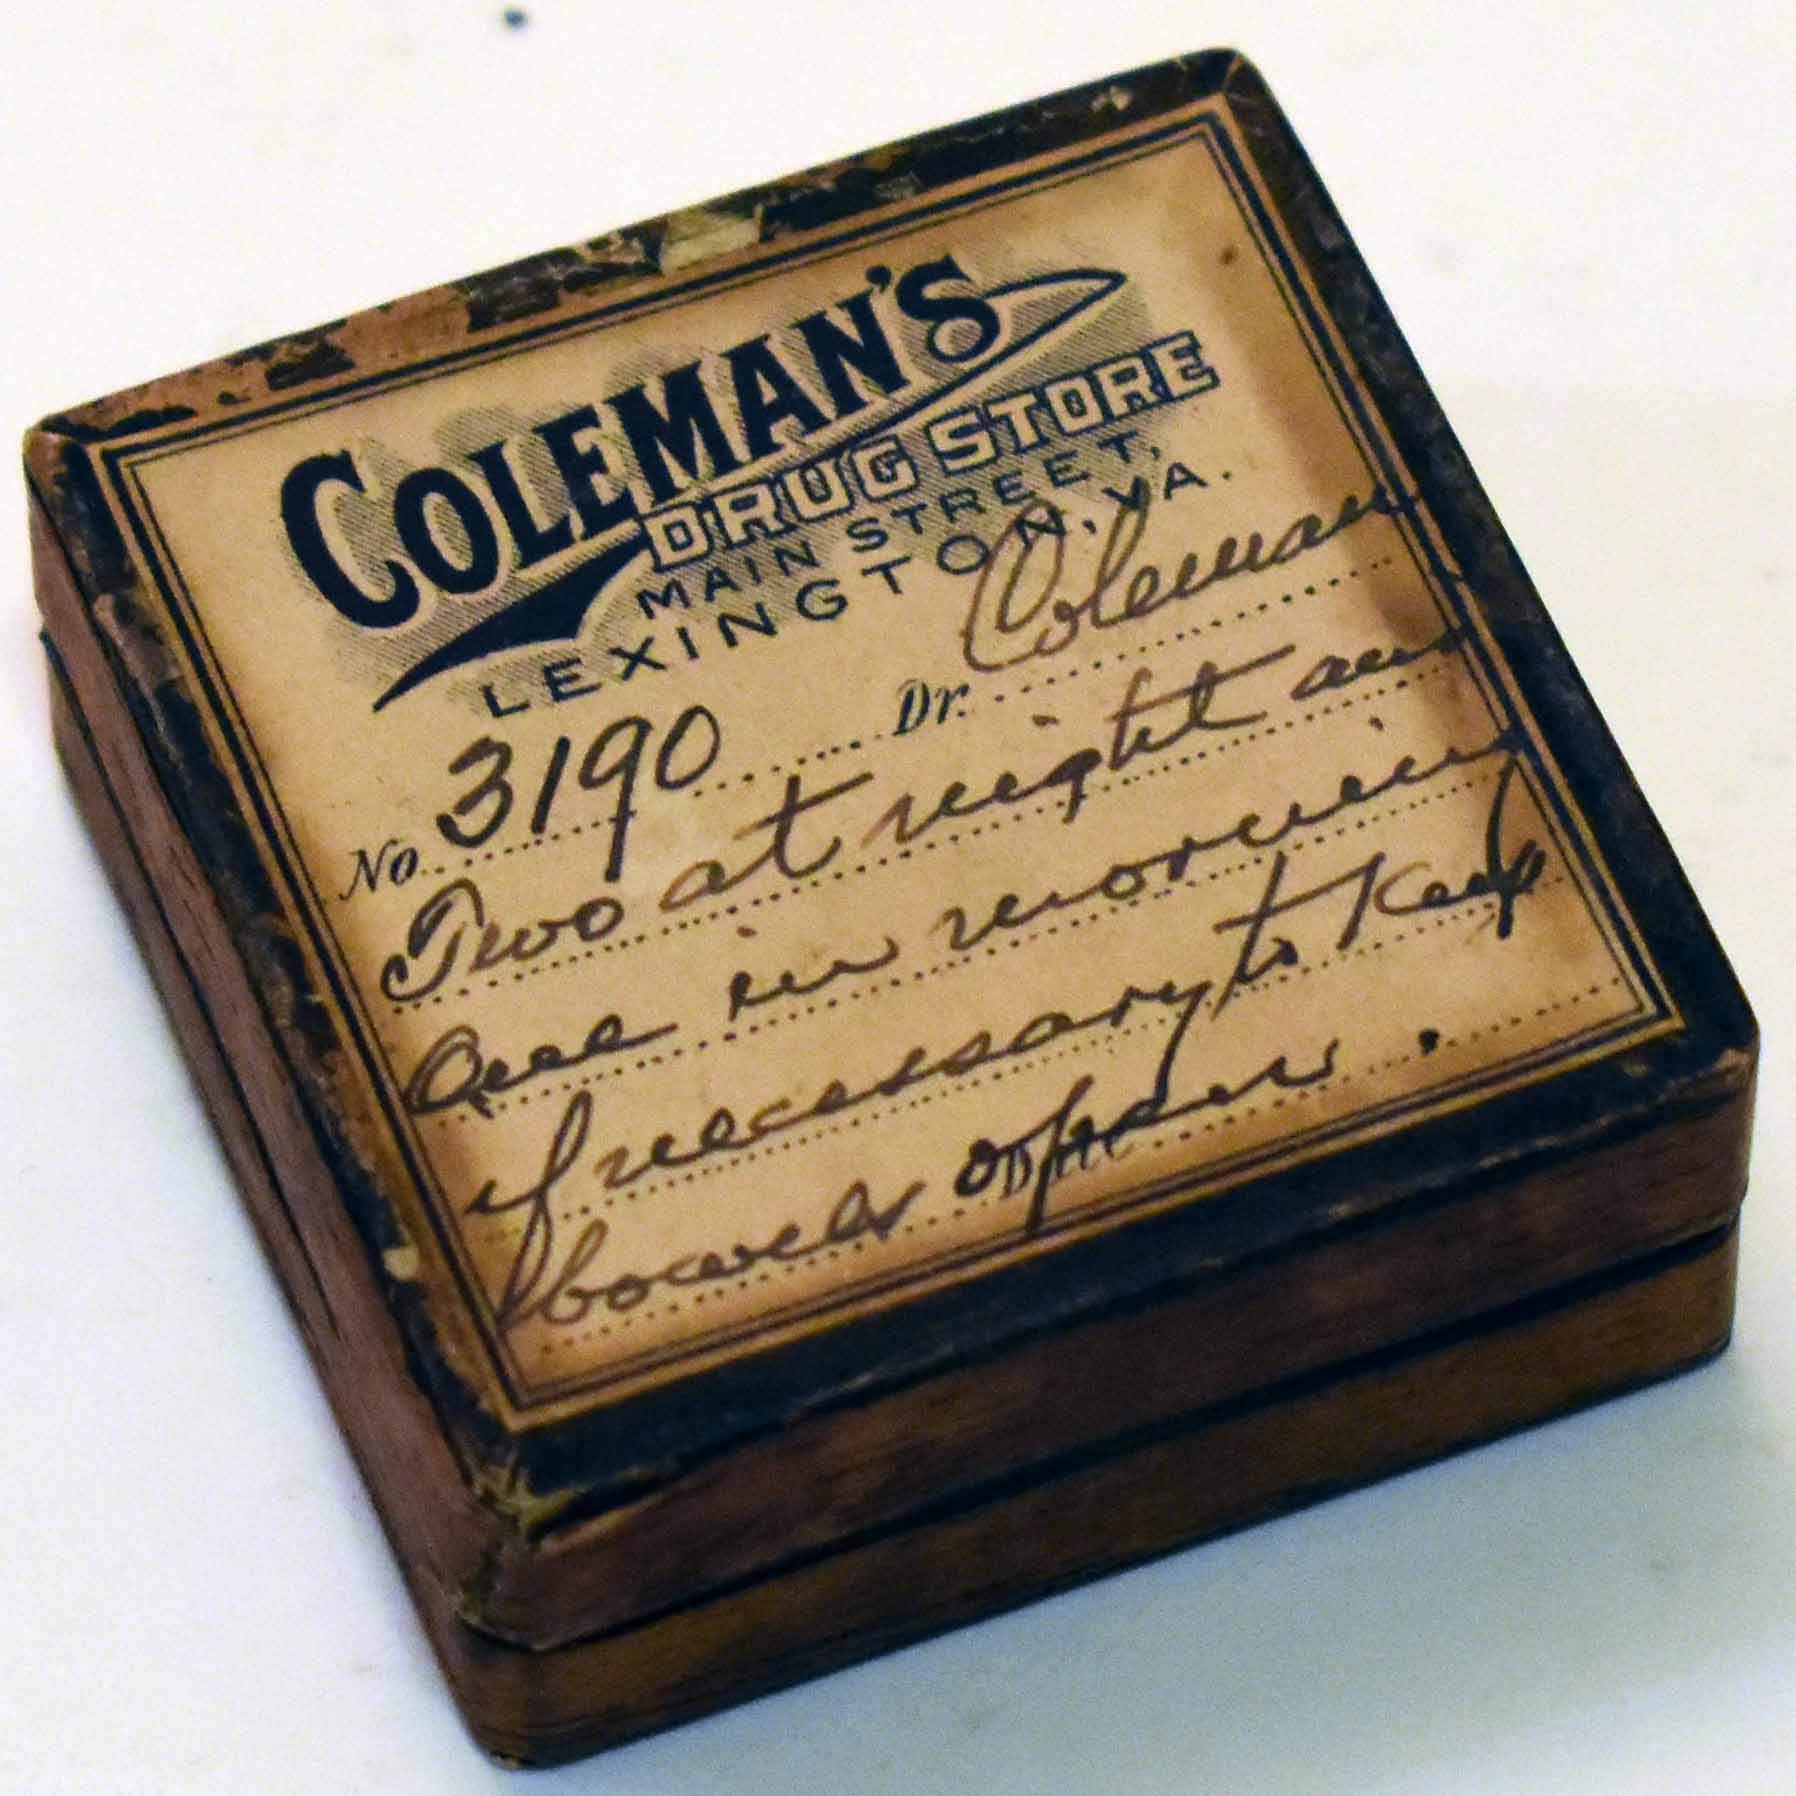 COLEMAN'S
DRUG STORE
MAIN STREET,
LEXINGTON, VA.
No. 3190 Dr. Coleman
Two at night and
One in morning
if necessary to Keep
bowels open.